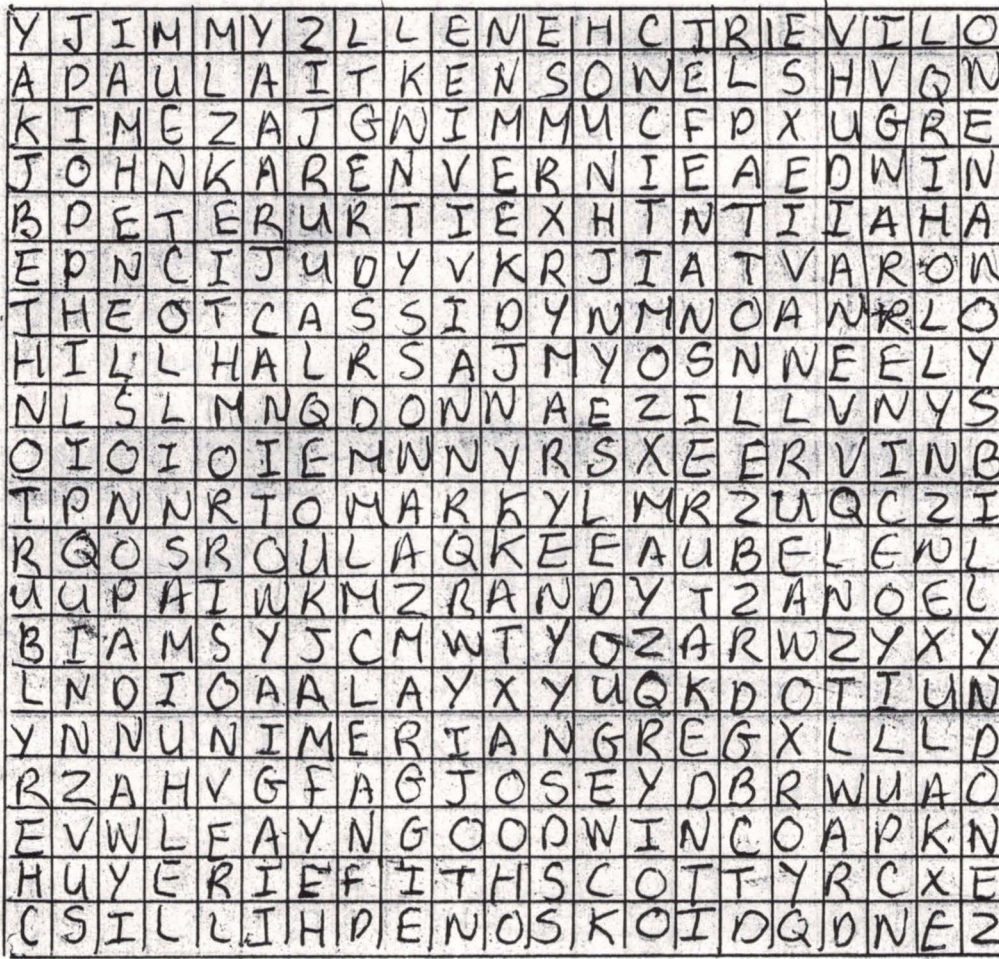 Y J I M M Y Z L L E N E H C I R E V I L O
A P A U L A I T K E N S O W E L S H V Q N
K I M E Z A J G W I M M U C F D X U G R E
J O H N K A R E N V E R N I E A E D W I N
B P E T E R U R T I E X H T N T I I A H A
E P N C I J U D Y V K R J I A T V A R O N
T H E O T C A S S I D Y N M N O A N R L O
H I L L H A L R S A J M Y O S N N E E L Y
N L S L M N Q D O N N A E Z I L L V N Y S
O I O I O I E M N N Y R S X E E R V I N B
T P N N R T O M A R K Y L M R Z U Q C Z I
R Q O S R O U L A Q K E E A U B E L E N L
U U P A I W K M Z R A N D Y T Z A N O E L
B I A M S Y J C M W T Y O Z A R W Z Y X Y
L N D I O A A L A Y X Y U Q K D O T I U N
Y N N U N I M E R I A N G R E G X L L L D
R Z A H V G F A G J O S E Y D B R W U A O
E V W L E A Y N G O O D W I N C O A P K N
H U Y E R I E F I T H S C O T T Y R C X E
C S I L L I H D E N O S K O I D Q D N E Z